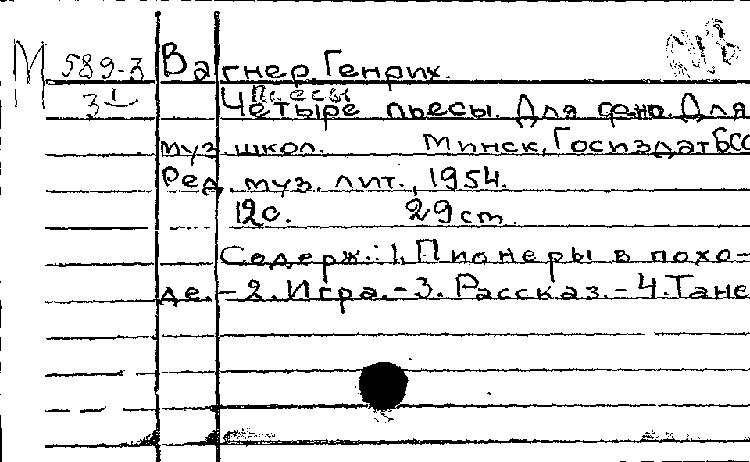 М 589-3 Вагнер Генрих.
3 1 Пьесы
Четыре пьесы. Для фено. Для
муз. школ. Минск, Госиздат БСС
Ред. муз. лит., 1954.
12с. 29 cm.
Содерж.: 1. Пионеры в похо-
де. - 2. Игра. - 3. Рассказ. - 4. Тане